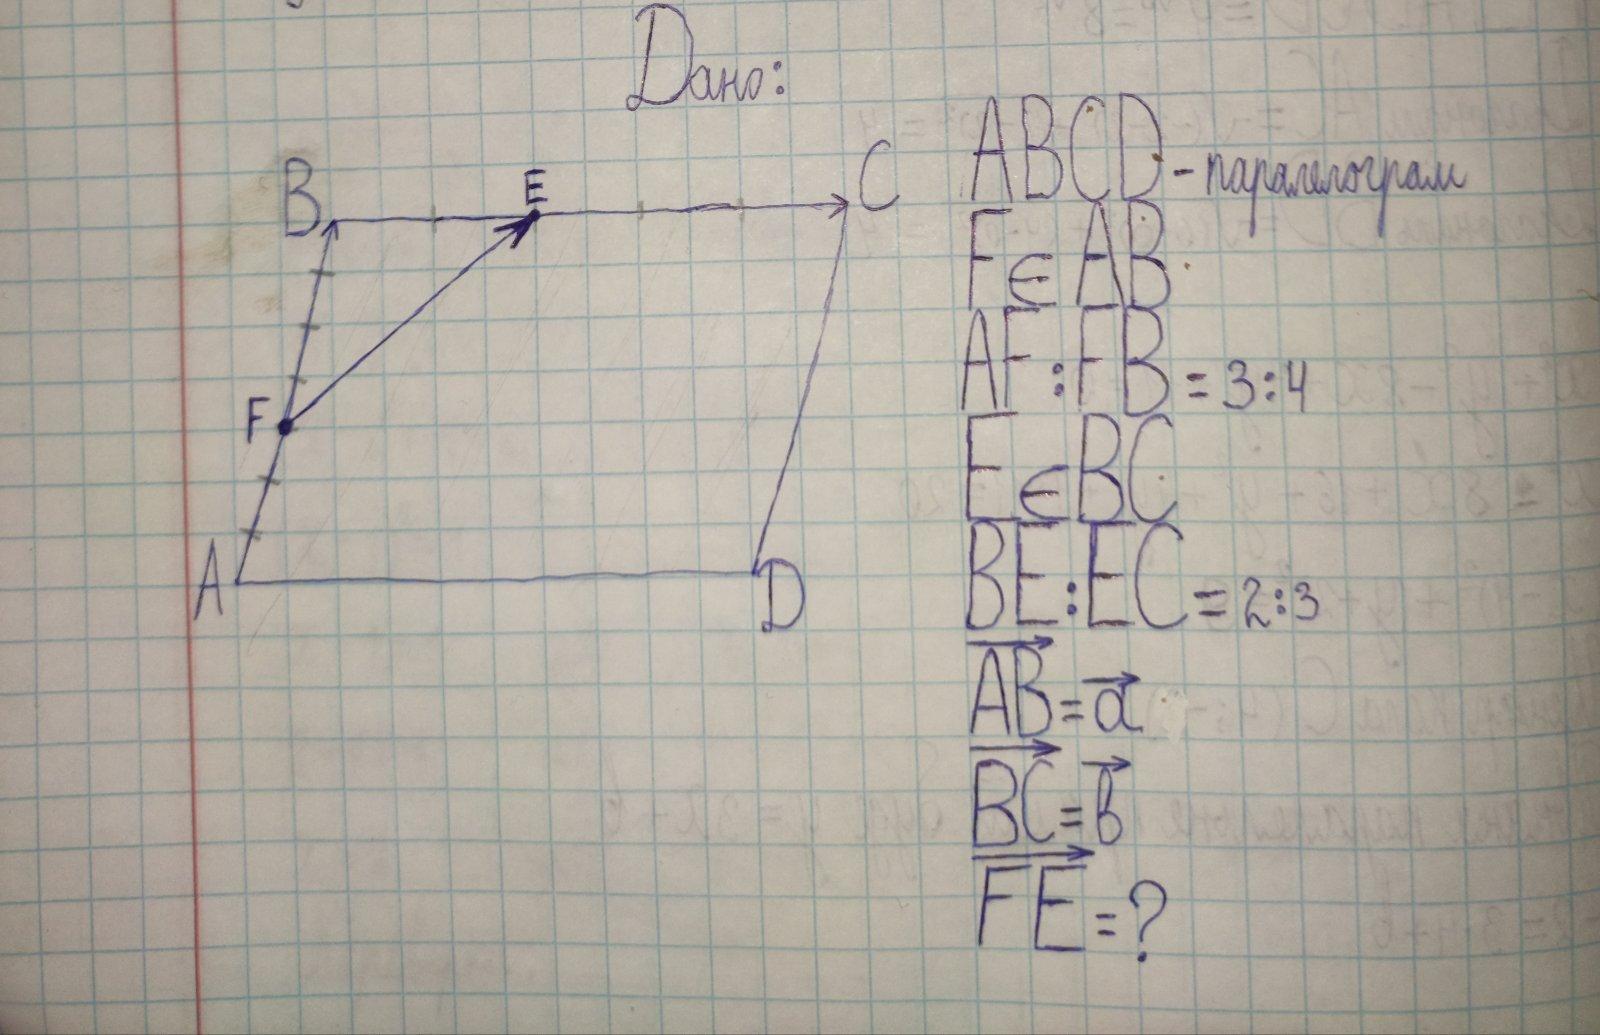 Дано:
B
E
C
F
A
D
ABCD - паралелограм
F ∈ AB
AF : FB = 3:4
E ∈ BC
BE : EC = 2:3
A͞B⃗ = a⃗
B͞C⃗ = b⃗
F͞E⃗ = ?